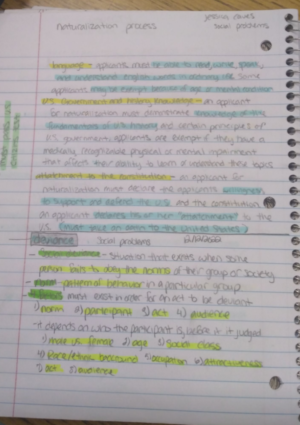 naturalization process
Social problems
language - applicants must be able to read, write, speak,
and understand english words in ordinary use. Some
applicants may be exempt because of age or mental condition
U.S. Government and history knowledge - an applicant
for naturalization must demonstrate knowledge of the
fundamentals of U.S. history and certain principles of
U.S. government. Applicants are exempt if they have a
medically recognizable physical or mental impairment
that affects their ability to learn or understand these topics
attachment to the constitution - an applicant for
naturalization must declare the applicant's willingness
to support and defend the U.S. and the constitution
an applicant declares his or her "attachment" to the
U.S. (must take an oath to the United States)
deviance Social problems
- situation that exists when some
person fails to obey the norms of their group or society
- pattern of behavior in a particular group
- must exist in order for an act to be deviant
1) norm 2) participants 3) act 4) audience
- it depends on who the participant is, before it is judged
1) male vs. female 2) age 3) social class
4) Race/ethnic background 5) occupation 6) attractiveness
7) act 8) audience